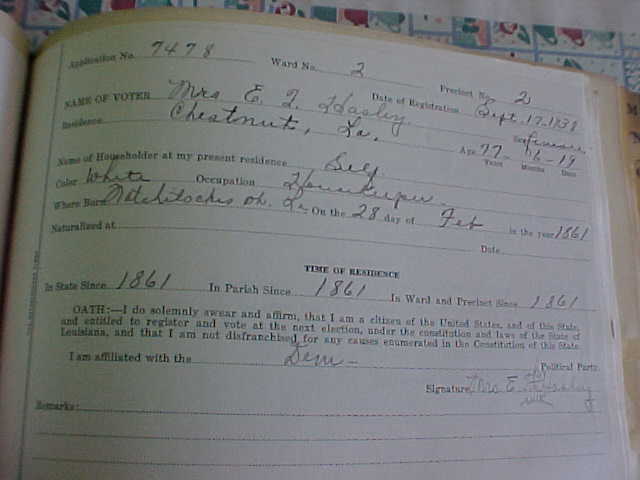 Application No. 7478 Ward No. 2 Precinct No. 2
NAME OF VOTER Mrs E. J. Hasley Date of Registration Sept. 17-1938
Residence Chestnut, La. Sex Female
Age 77 - 6 - 19
Years Months Days
Name of Householder at my present residence Self
Color White Occupation Housekeeper
Where Born Natchitoches Ph. La. On the 28 day of Feb in the year 1861
Naturalized at Date
TIME OF RESIDENCE
In State Since 1861 In Parish Since 1861 In Ward and Precinct Since 1861
OATH:—I do solemnly swear and affirm, that I am a citizen of the United States, and of this State,
and entitled to register and vote at the next election, under the constitution and laws of the State of
Louisiana, and that I am not disfranchised for any causes enumerated in the Constitution of this State.
I am affiliated with the Dem - Political Party.
Signature Mrs E. Hasley
Remarks: